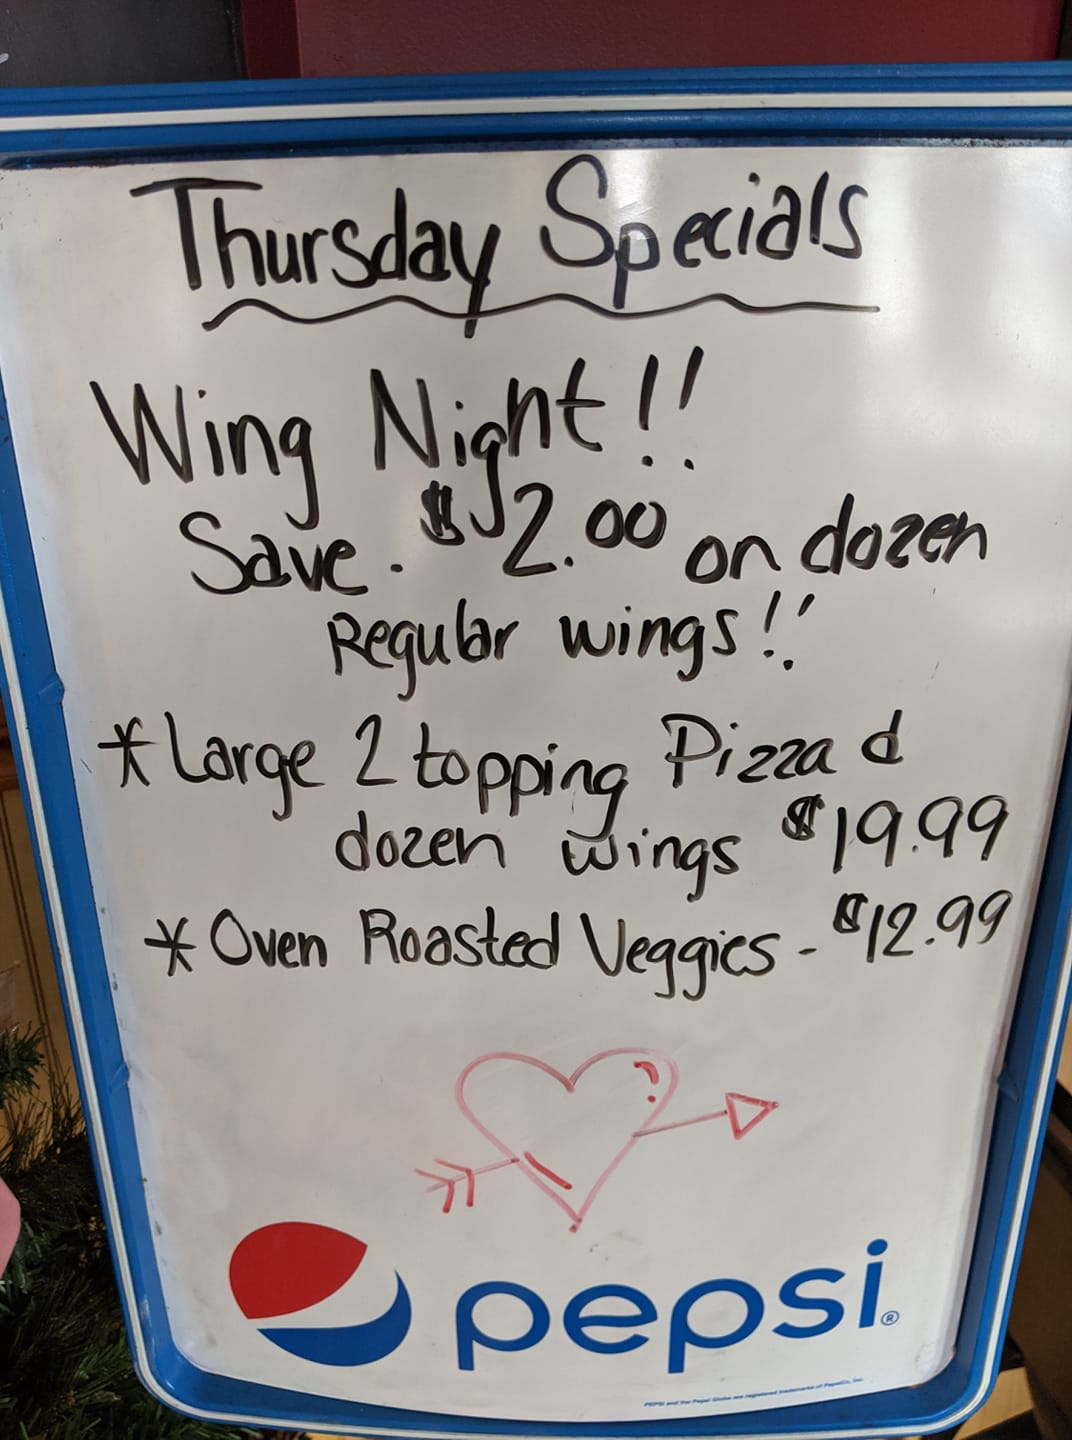 Thursday Specials
Wing Night!!
Save. $2.00 on dozen
Regular wings!!
*Large 2 topping Pizza d
dozen wings $19.99
*Oven Roasted Veggies - $12.99
pepsi®
PEPSI and the Pepsi Globe are registered trademarks of PepsiCo, Inc.